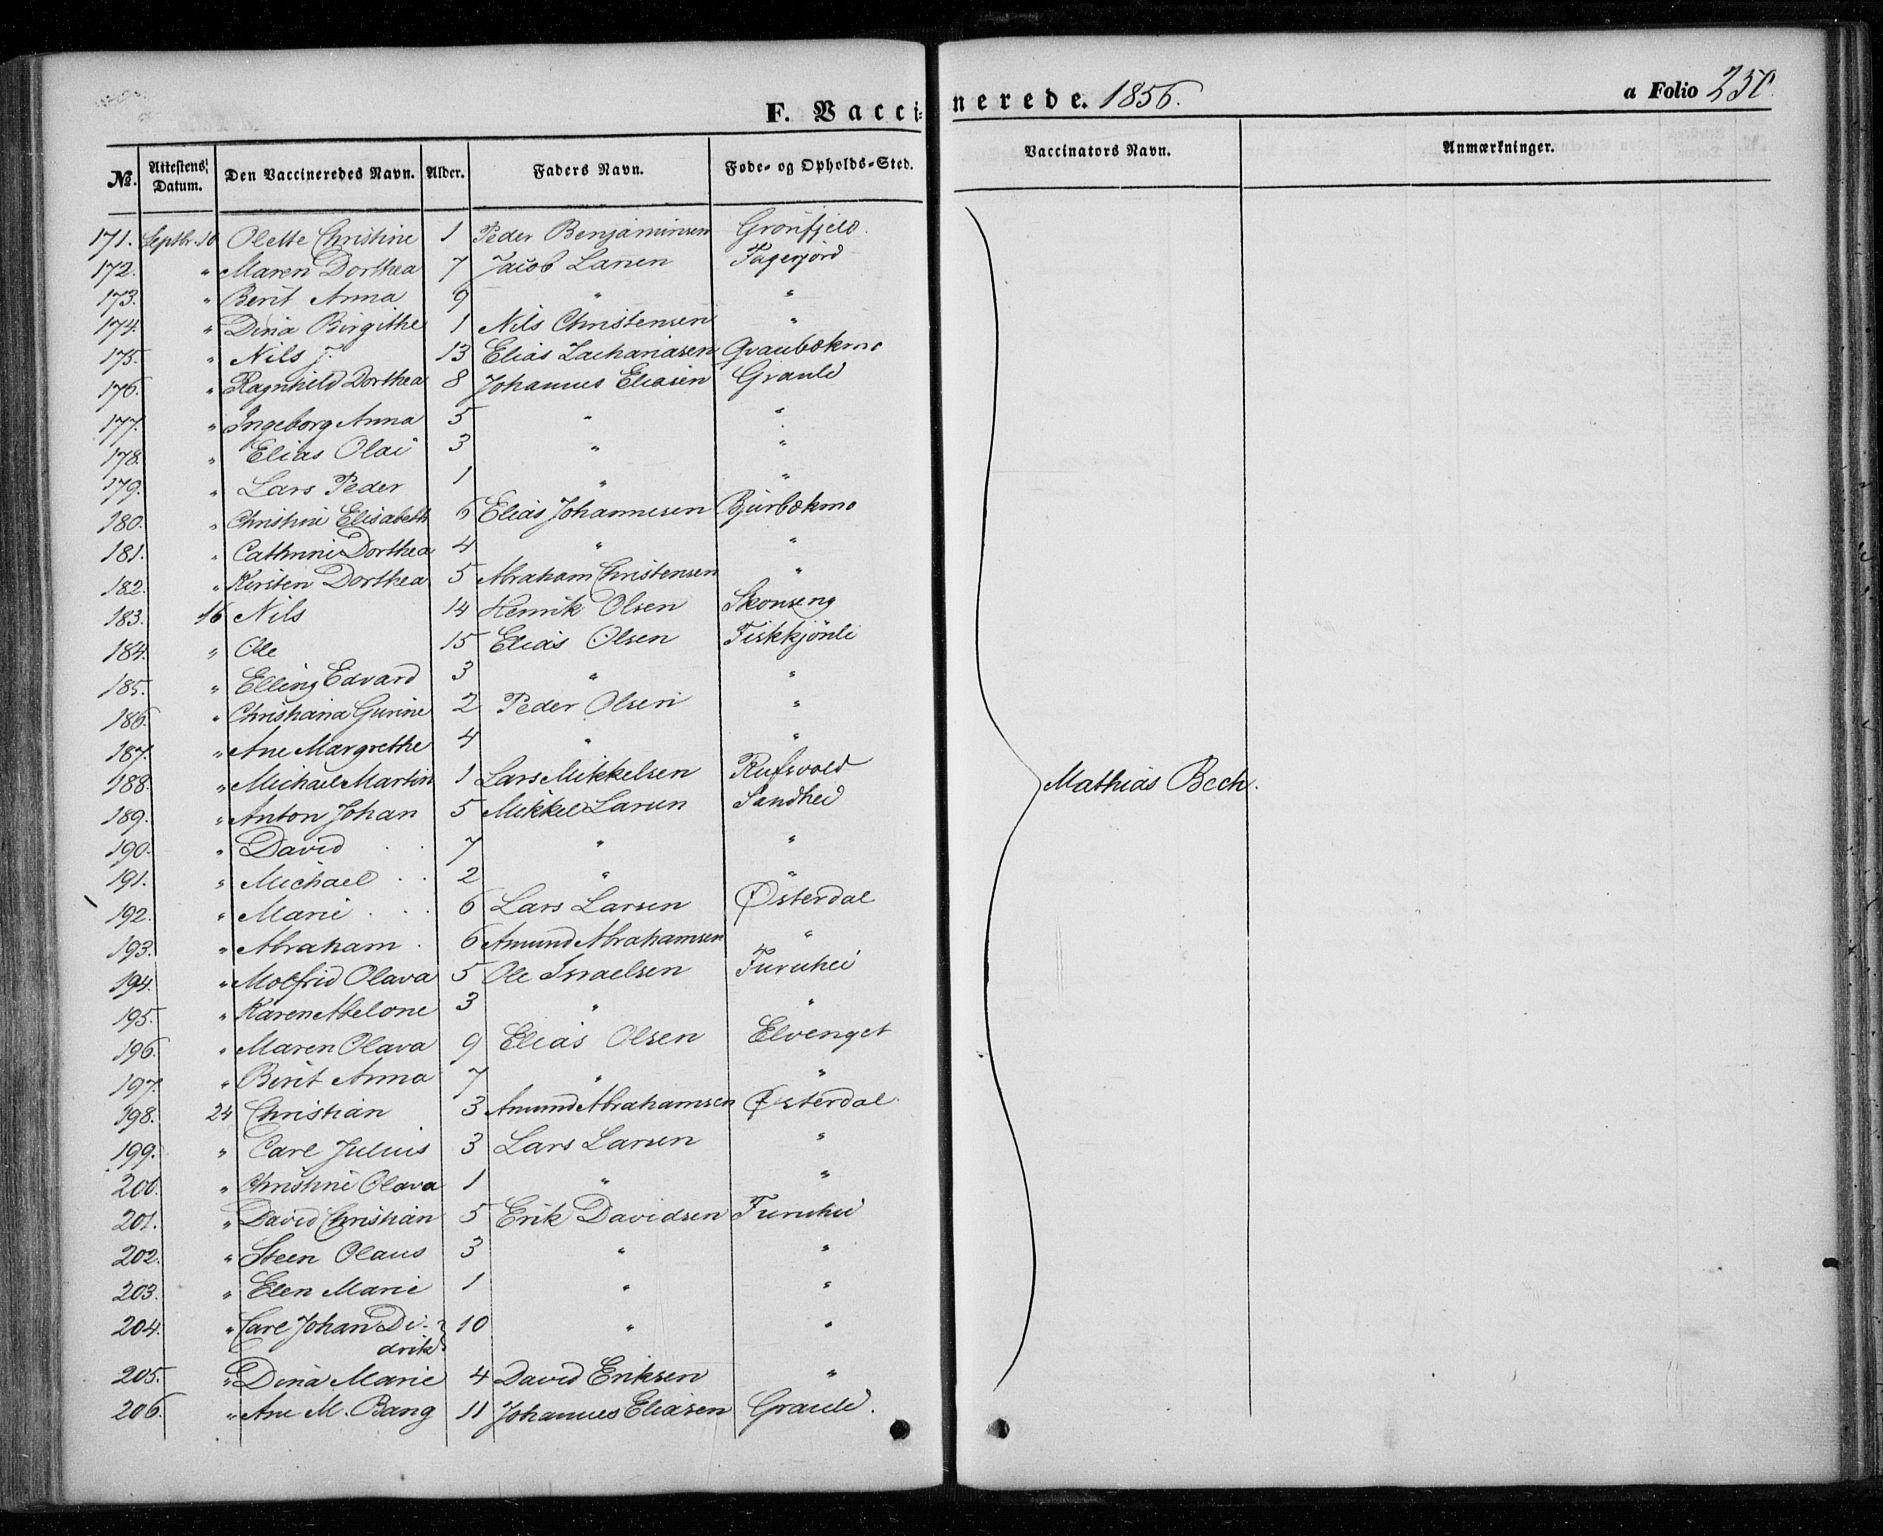 F. Vaccinerede. 1856. a Folio 250.
No. Attestens Datum. Den Vaccineredes Navn. Alder. Faders Navn. Føde- og Opholds-Sted. Vaccinators Navn. Anmærkninger.
171. Septbr. 10 Olette Christine 1 Peder Benjaminsen Grønfjeld.
172. " Maren Dorthea 7 Jacob Larsen Fagerjord
173. " Berit Anna 9 " "
174. " Dina Birgithe 1 Nils Christensen "
175. " Nils J. 13 Elias Zachariasen Gvaubækmo
176. " Ragnhild Dorthea 8 Johannes Eliasen Graule
177. " Ingeborg Anna 5 " "
178. " Elias Olai 3 " "
179. " Lars Peder 1 " "
180. " Christine Elisabeth 6 Elias Johannesen Bjurbækmo
181. " Cathrine Dorthea 4 " "
182. " Kirsten Dorthea 5 Abraham Christensen "
183. 16 Nils 14 Henrik Olsen Skonseng
184. " Ole 15 Elias Olsen Fiskkjönli
185. " Elling Edvard 3 " "
186. " Christiana Gurine 2 Peder Olsen "
187. " Ane Margrethe 4 " "
188. " Michael Martin 1 Lars Mikkelsen Rufsvold
189. " Anton Johan 5 Mikkel Larsen Sandhei
190. " David 7 " "
Mathias Bech.
191. " Michael 2 " "
192. " Marie 6 Lars Larsen Østerdal
193. " Abraham 6 Amund Abrahamsen "
194. " Molfrid Olava 5 Ole Israelsen Furuhei
195. " Karen Abelone 3 " "
196. " Maren Olava 9 Elias Olsen Elvenget
197. " Berit Anna 7 " "
198. 24 Christian 3 Amund Abrahamsen Østerdal
199. " Carl Julius 3 Lars Larsen "
200. " Christine Olava 1 " "
201. " David Christian 5 Erik Davidsen Furuhei
202. " Steen Olaus 3 " "
203. " Elen Marie 1 " "
204. " Carl Johan Di- 10 " "
drik
205. " Dina Marie 4 David Eriksen "
206. " Ane M. Bang 11 Johannes Eliasen Graule.